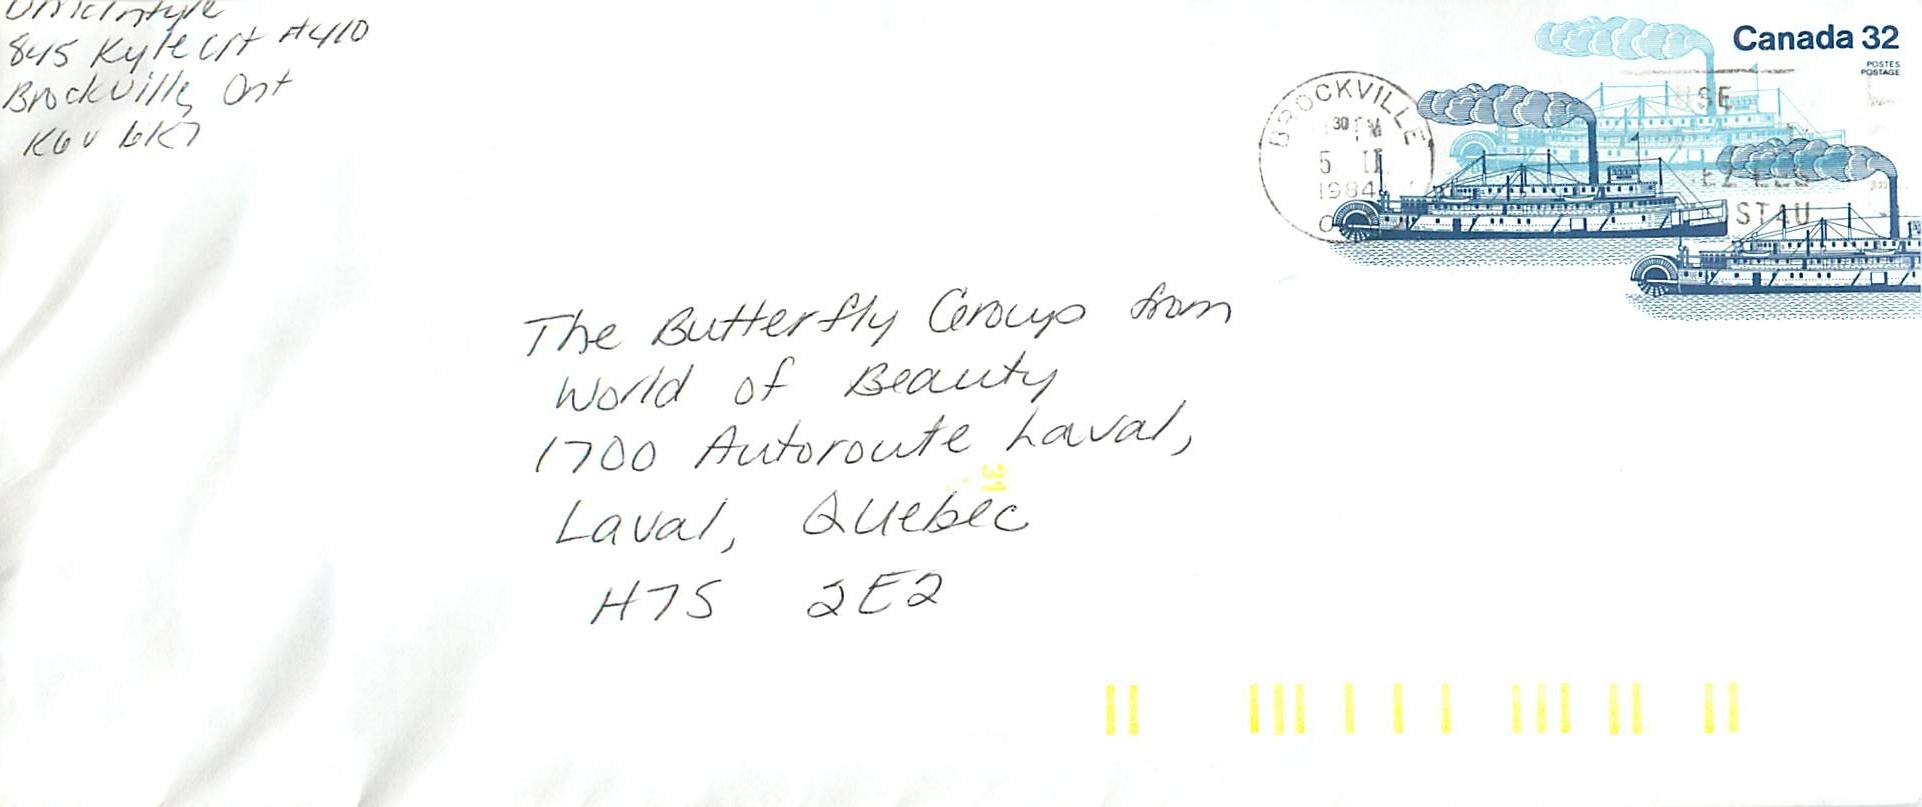 845 Kyle Crt #410
Brockville, Ont
K6V 6K7
Canada 32
POSTES
POSTAGE
BROCKVILLE
30 PM
5 II
1984
The Butterfly Group from
World of Beauty
1700 Autoroute Laval,
Laval, Quebec
H7S 2E2
37